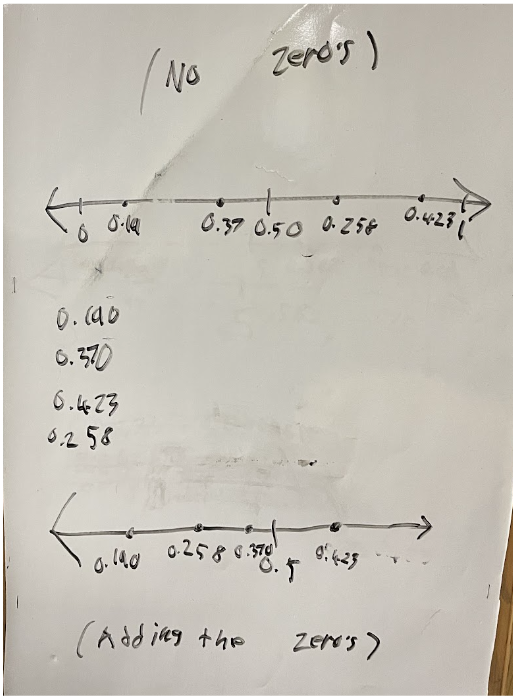 (No Zero's)
0 0.19 0.37 0.50 0.258 0.423 1
0.190
0.370
0.423
0.258
0.190 0.258 0.370 0.5 0.423
(Adding the zero's)